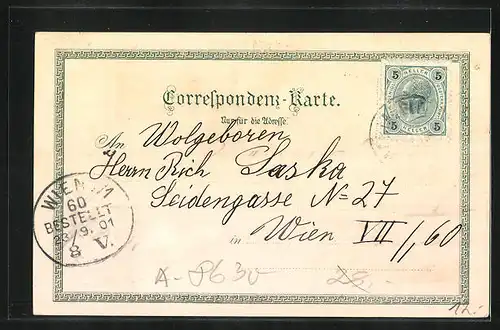 5 HELLER 5
5 HELLER 5
Correspondenz-Karte.
Nur für die Adresse.
An Wolgeboren
Herrn Rich Laska
Seidengasse № 27
in Wien VII/1,60
WIEN 7/1
60
BESTELLT
23/9.01
8 V.
A-8630
28.-
12.-